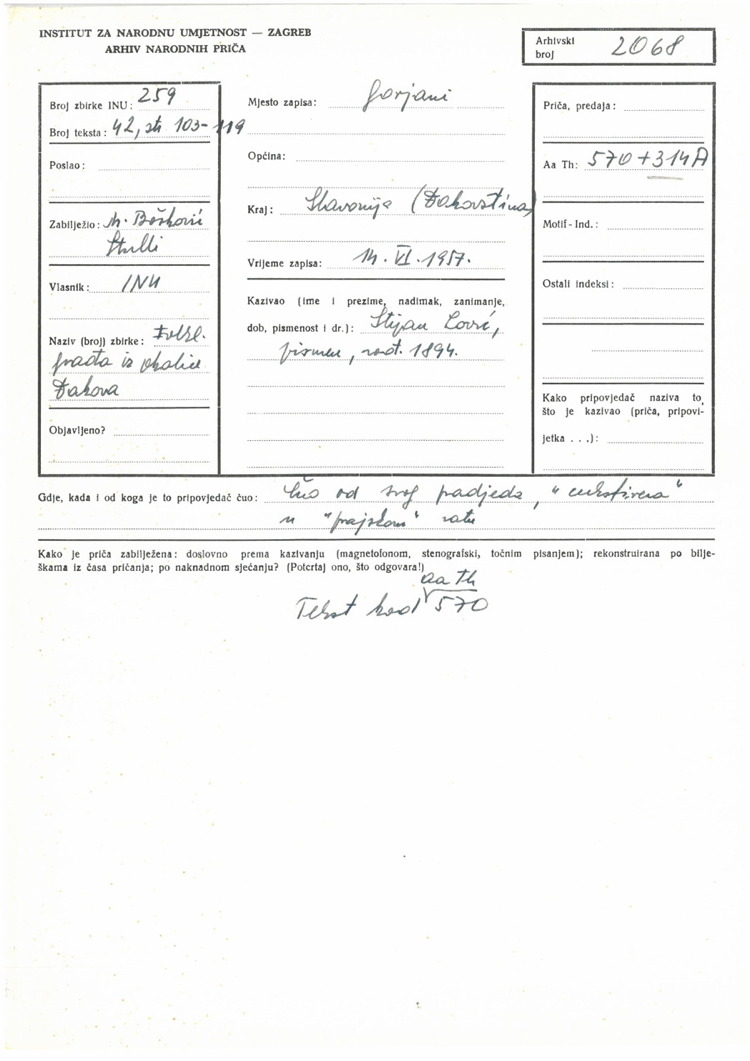 INSTITUT ZA NARODNU UMJETNOST — ZAGREB
ARHIV NARODNIH PRIČA
Arhivski broj 2068
Broj zbirke INU: 259
Broj teksta: 42, str 103-119
Poslao:
Zabilježio: M. Bošković
Stulli
Vlasnik: INU
Naziv (broj) zbirke: Folkl.
građa iz okolice
Đakova
Objavljeno?
Mjesto zapisa: Gorjani
Općina:
Kraj: Slavonija (Đakovština)
Vrijeme zapisa: 14. VI. 1957.
Kazivao (ime i prezime, nadimak, zanimanje,
dob, pismenost i dr.): Stjepan Lovrić,
pismen, rođ. 1894.
Priča, predaja:
Aa Th: 570 + 314A
Motif - Ind.:
Ostali indeksi:
Kako pripovjedač naziva to,
što je kazivao (priča, pripovi-
jetka . . .):
Gdje, kada i od koga je to pripovjedač čuo: čuo od svog pradjeda,
u "prajskom" ratu
Kako je priča zabilježena: doslovno prema kazivanju (magnetofonom, stenografski, točnim pisanjem); rekonstruirana po bilje-
škama iz časa pričanja; po naknadnom sjećanju? (Potcrtaj ono, što odgovara!)
aa Th
Tekst kod 570